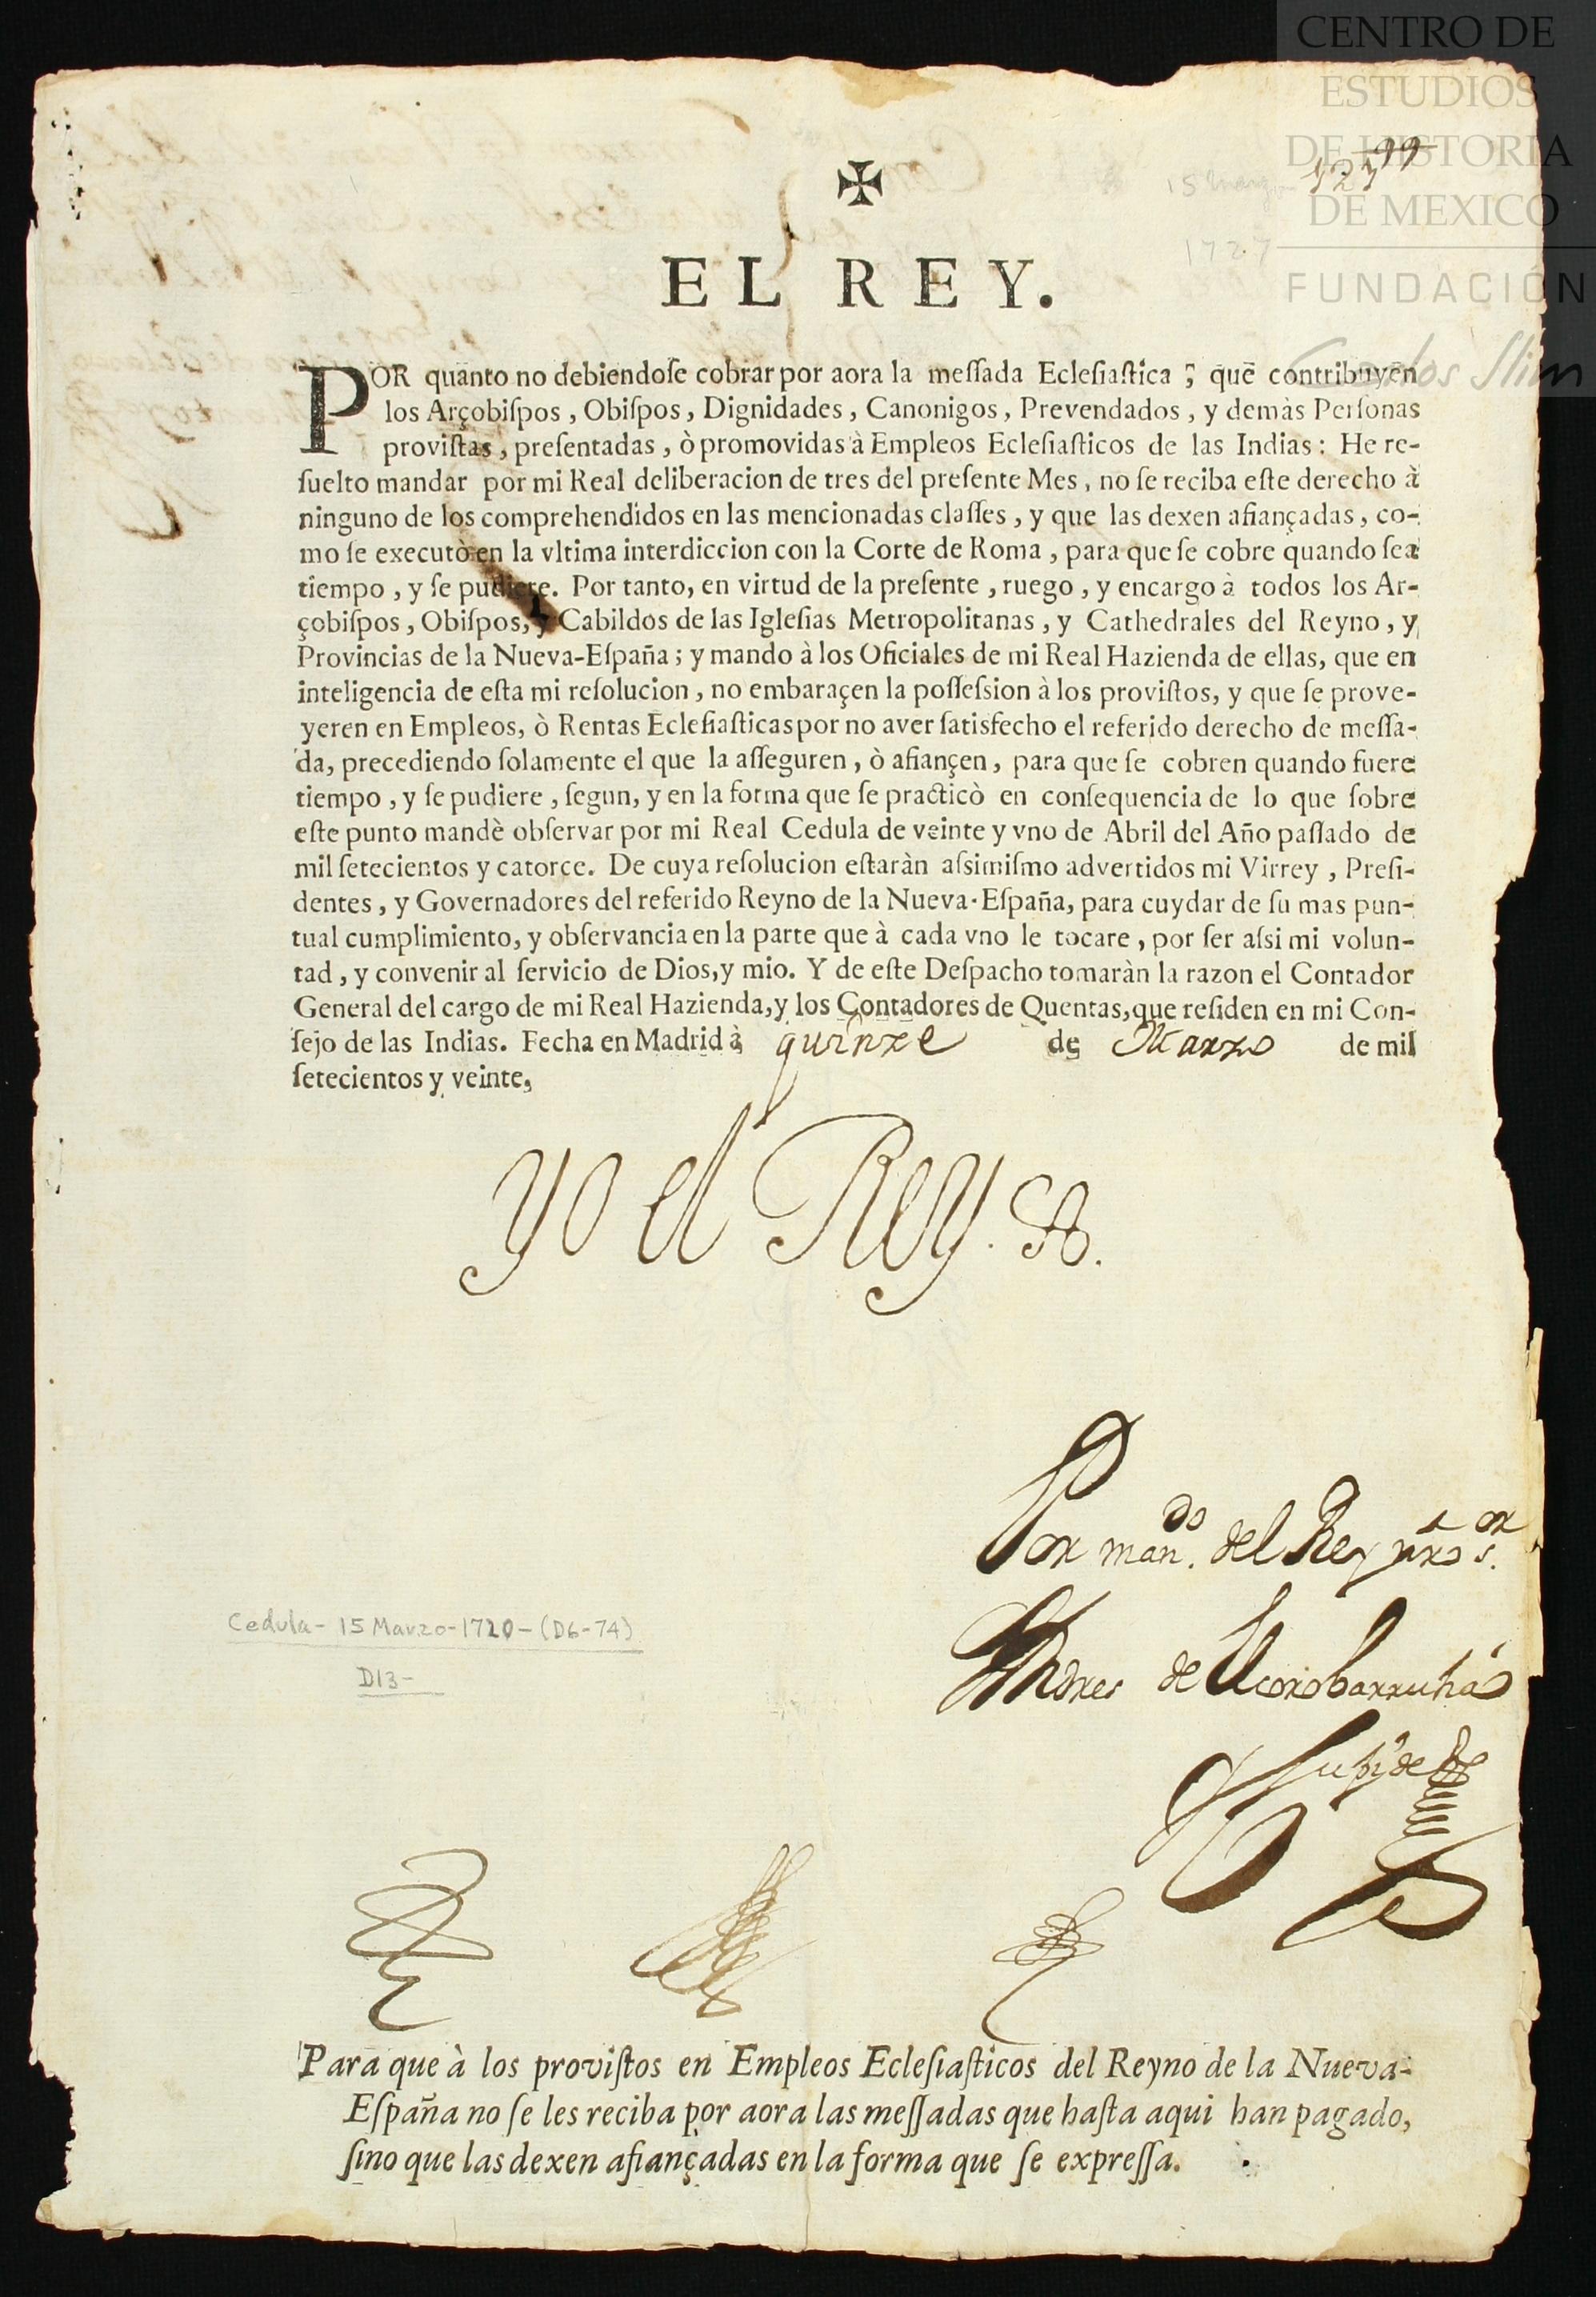 CENTRO DE
ESTUDIOS
DE HISTORIA
DE MEXICO
FUNDACIÓN
Carlos Slim
99
15 Marzo
172.7
✠
EL REY.
POR quanto no debiendose cobrar por aora la messada Eclesiastica ; quē contribuyēn
los Arçobispos , Obispos , Dignidades , Canonigos , Prevendados , y demàs Personas
provistas , presentadas , ò promovidas à Empleos Eclesiasticos de las Indias : He re-
suelto mandar por mi Real deliberacion de tres del presente Mes , no se reciba este derecho à
ninguno de los comprehendidos en las mencionadas classes , y que las dexen afiançadas , co-
mo se executò en la vltima interdiccion con la Corte de Roma , para que se cobre quando sea
tiempo , y se pudiere. Por tanto, en virtud de la presente , ruego , y encargo à todos los Ar-
çobispos , Obispos, y Cabildos de las Iglesias Metropolitanas , y Cathedrales del Reyno , y
Provincias de la Nueva-España ; y mando à los Oficiales de mi Real Hazienda de ellas, que en
inteligencia de esta mi resolucion , no embaraçen la possession à los provistos, y que se prove-
yeren en Empleos, ò Rentas Eclesiasticas por no aver satisfecho el referido derecho de messa-
da, precediendo solamente el que la asseguren , ò afiançen , para que se cobren quando fuere
tiempo , y se pudiere , segun, y en la forma que se practicò en consequencia de lo que sobre
este punto mandè observar por mi Real Cedula de veinte y vno de Abril del Año passado de
mil setecientos y catorce. De cuya resolucion estaràn assimismo advertidos mi Virrey , Presi-
dentes , y Governadores del referido Reyno de la Nueva-España, para cuydar de su mas pun-
tual cumplimiento, y observancia en la parte que à cada vno le tocare , por ser assi mi volun-
tad , y convenir al servicio de Dios, y mio. Y de este Despacho tomaràn la razon el Contador
General del cargo de mi Real Hazienda, y los Contadores de Quentas, que residen en mi Con-
sejo de las Indias. Fecha en Madrid à quinze de Marzo de mil
setecientos y veinte,
Yo el Rey.
Por man.do del Rey nro s.or
Andres de Elcorobarrutia
Cedula - 15 Marzo - 1720 - (D6-74)
D13-
Para que à los provistos en Empleos Eclesiasticos del Reyno de la Nueva-
España no se les reciba por aora las messadas que hasta aqui han pagado,
sino que las dexen afiançadas en la forma que se expressa.